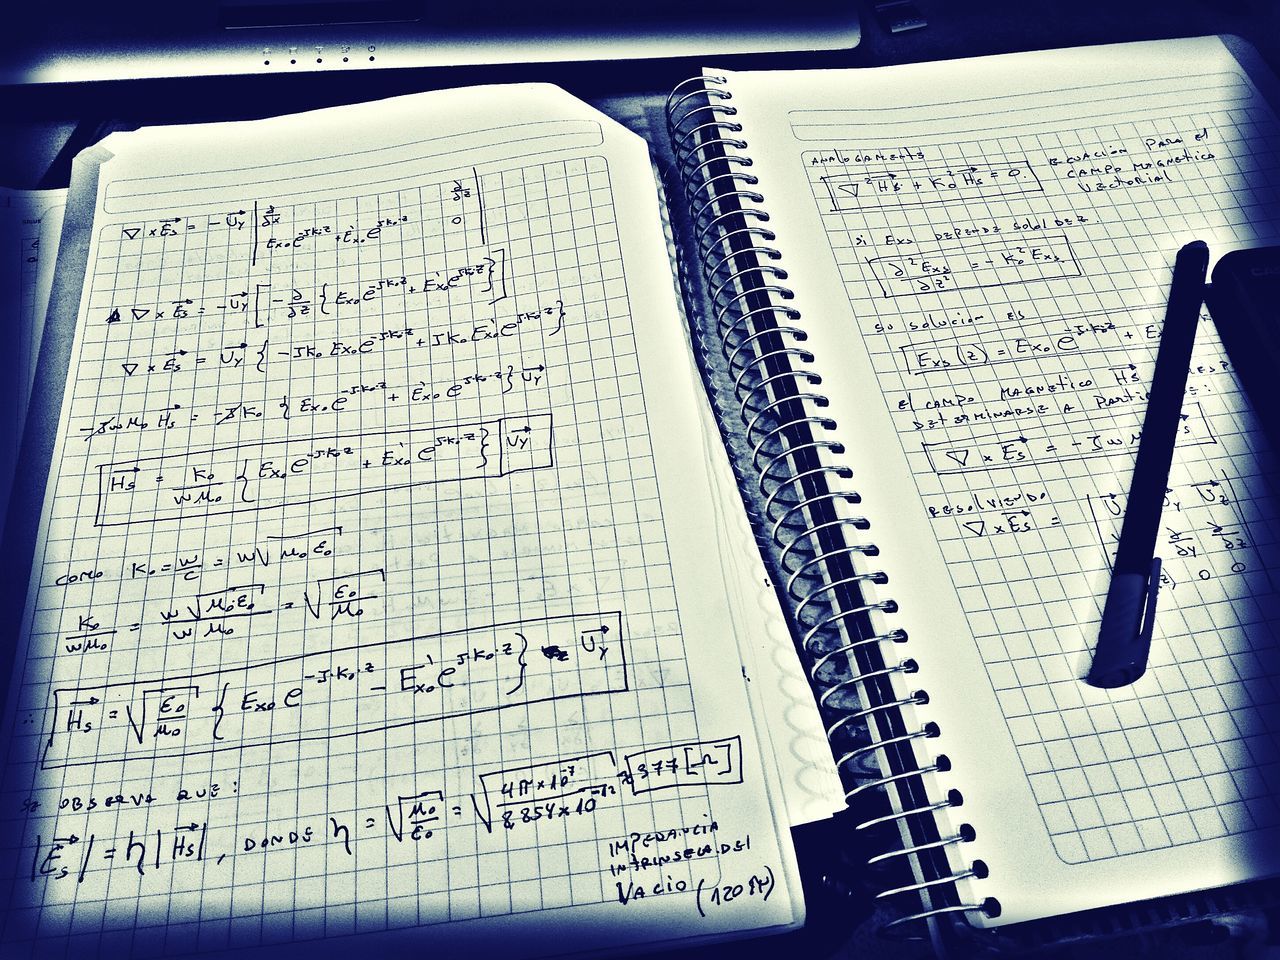 ∇ × E⃗s = - U⃗y | ∂/∂x ∂/∂z |
| Exo e^-Jko·z + E'xo e^Jko·z 0 |
∇ × E⃗s = - U⃗y [ - ∂/∂z { Exo e^-Jko·z + E'xo e^Jko·z } ]
∇ × E⃗s = U⃗y { -Jko Exo e^-Jko·z + Jko E'xo e^Jko·z }
-Jωμo H⃗s = -Jko { Exo e^-Jko·z + E'xo e^Jko·z } U⃗y
H⃗s = ko/ωμo { Exo e^-Jko·z + E'xo e^Jko·z } U⃗y
COMO Ko = ω/c = ω√μo εo
Ko/ωμo = ω√μo·εo / ωμo = √εo/μo
∴ H⃗s = √εo/μo { Exo e^-J·ko·z - E'xo e^J·ko·z } U⃗y
SE OBSERVA QUE:
|E⃗s| = η |H⃗s| , DONDE η = √μo/εo = √4π×10^-7 / 8.854×10^-12 ≈ 377 [Ω]
IMPEDANCIA
INTRINSECA DEL
VACIO (120π)
ANALOGAMENTE
∇²H⃗s + Ko²H⃗s = 0. ECUACIÓN PARA El
CAMPO MAGNETICO
VECTORIAL
Si Exs DEPENDE SOLO DE Z.
∂²Exs/∂z² = -Ko² Exs
SU SOLUCION ES
Exs(z) = Exo e^-J·koz + E
El CAMPO MAGNETICO H⃗s
DETERMINARSE A PARTI :
∇ × E⃗s = -Jωμ
RESOLVIENDO
∇ × E⃗s = | U⃗ U⃗y U⃗z |
∂/∂y ∂/∂z
0 0